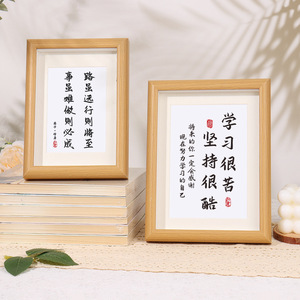 路虽远行则将至
事虽难做则必成
学习很苦
坚持很酷
将来的你一定会感谢
现在努力学习的自己